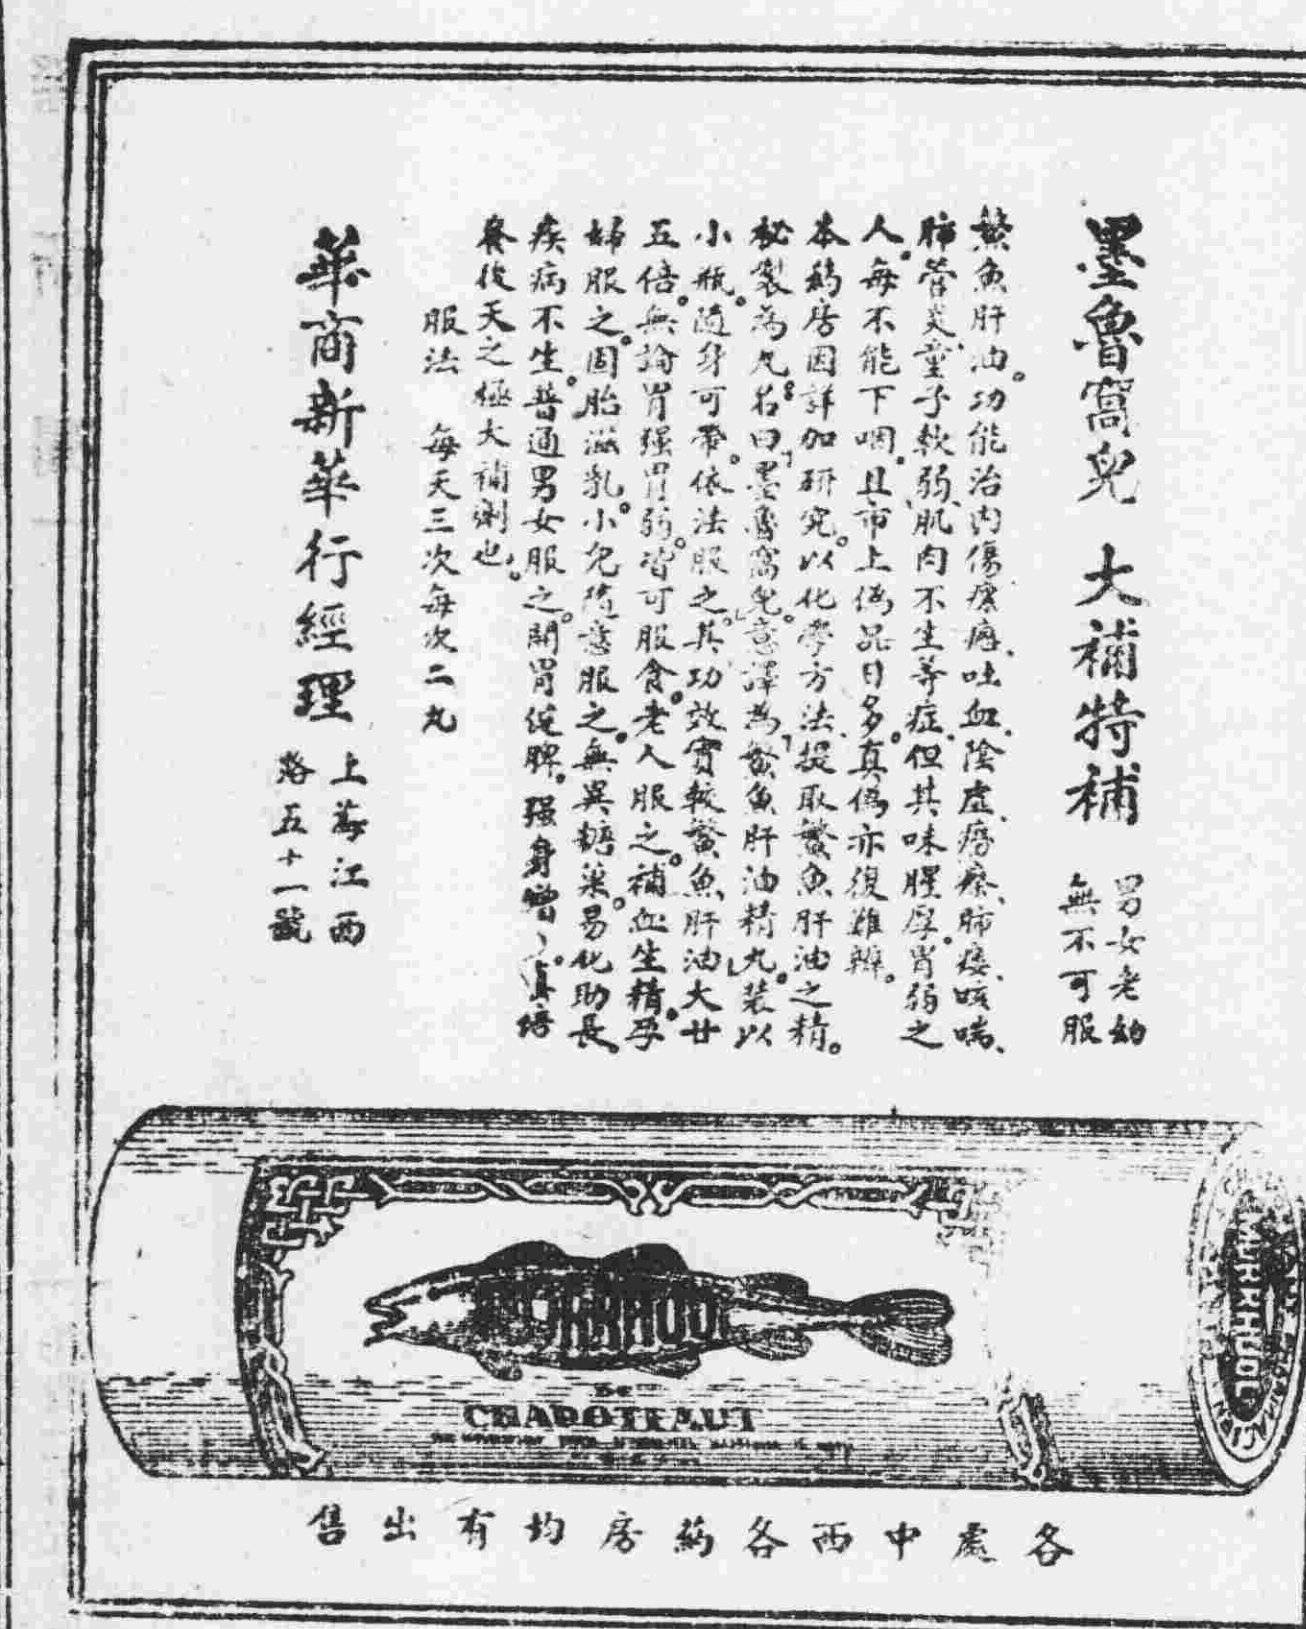 墨魯窩兒 大補特補
男女老幼
無不可服
鰵魚肝油。功能治內傷瘰癧、吐血、陰虛癆瘵、肺痿、咳喘、
肺管炎、童子軟弱、肌肉不生等症、但其味腥厚。胃弱之
人。每不能下咽。且市上偽品日多。真偽亦復難辨。
本葯房因詳加研究。以化學方法、提取鰵魚肝油之精。
秘製為丸。名曰「墨魯窩兒」。意譯為「鰵魚肝油精丸」。裝以
小瓶。隨身可帶。依法服之。其功效實較鰵魚肝油大廿
五倍。無論胃强胃弱。皆可服食。老人服之。補血生精。孕
婦服之。固胎滋乳。小兒隨意服之。無異糖菓。易化助長。
疾病不生。普通男女服之。開胃健脾。强身增、。真培
養後天之極大補劑也。
服法 每天三次每次二丸
華商新華行經理
上海江西
路五十一號
MORRHUOL
De
CHAPOTEAUT
MORRHUOL
各處中西各葯房均有出售